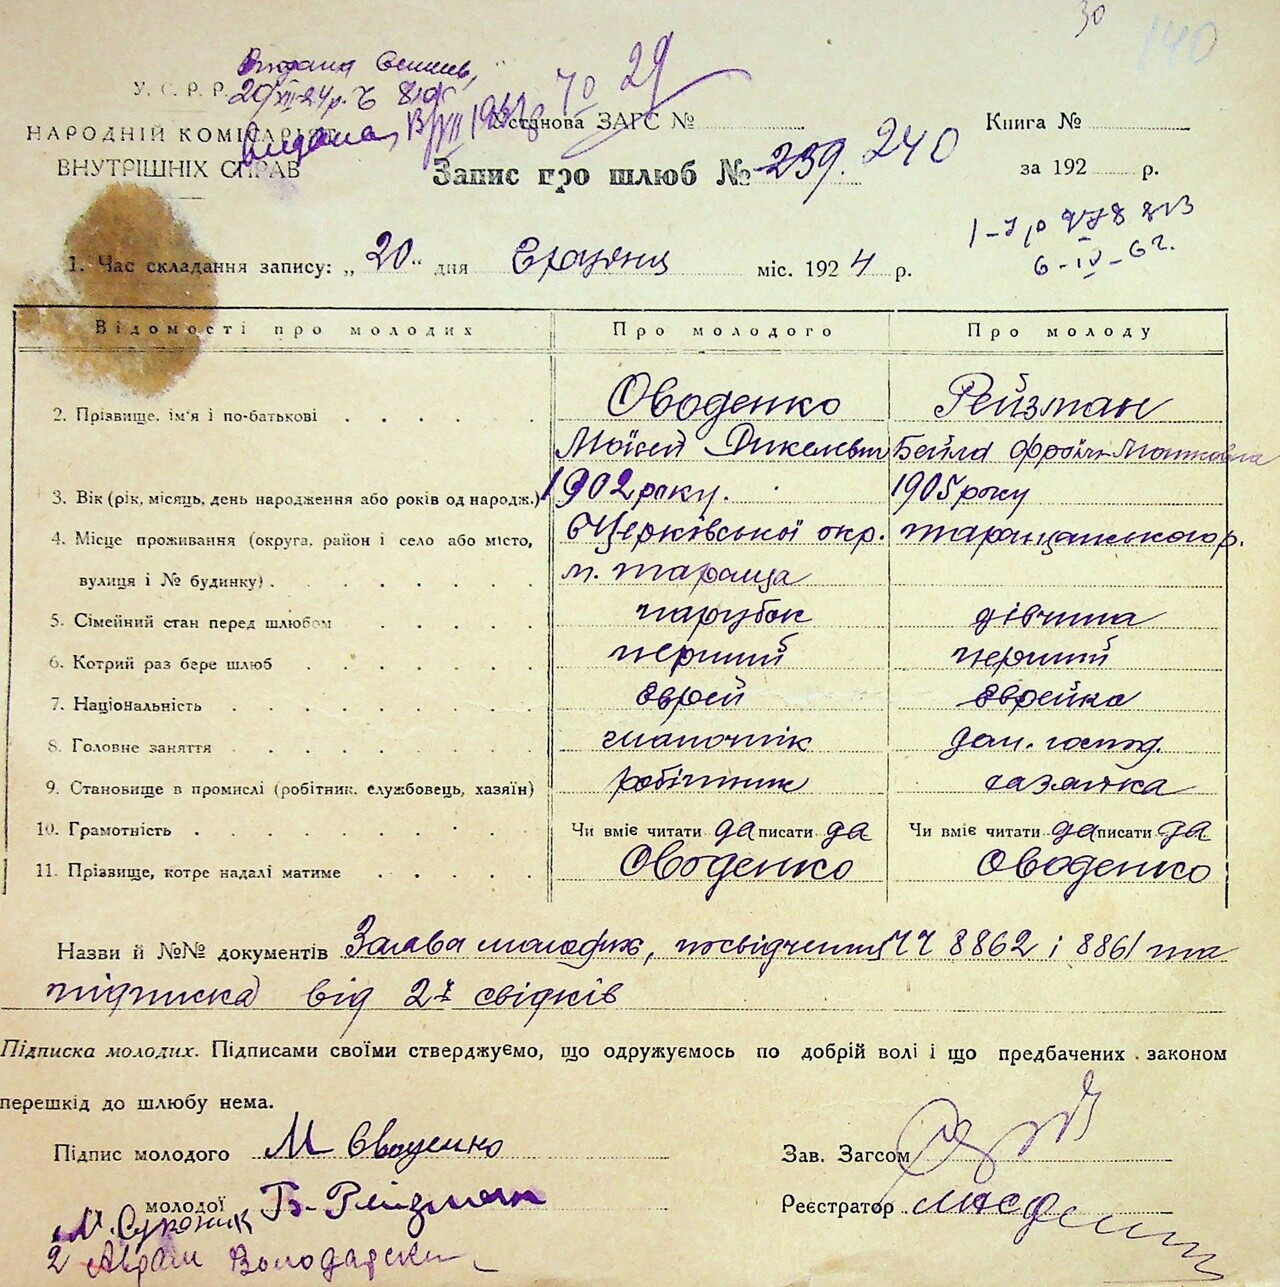 30
140
У. С. Р. Р.
29
НАРОДНІЙ КОМІСАРІЯТ
ВНУТРІШНІХ СПРАВ
видана
Установа ЗАГС №
Книга №
Запис про шлюб № 239. 240
за 192 р.
6-IV-62.
1. Час складання запису: „20“ дня міс. 1924 р.
Відомості про молодих Про молодого Про молоду
2. Прізвище, ім'я і по-батькові Оводенко Рейзман
Мойсей Бейла
3. Вік (рік, місяць, день народження або років од народж.) 1902 року. 1905 року
4. Місце проживання (округа, район і село або місто, Б Церківської окр. Таращанського р.
вулиця і № будинку) м. Тараща
5. Сімейний стан перед шлюбом парубок дівчина
6. Котрий раз бере шлюб перший перший
7. Національність Єврей Єврейка
8. Головне заняття шапочнік дом. господ.
9. Становище в промислі (робітник, службовець, хазяїн) робітник хазяйка
10. Грамотність Чи вміє читати да писати да Чи вміє читати да писати да
11. Прізвище, котре надалі матиме Оводенко Оводенко
Назви й №№ документів Заява молодих, посвідчення 8862 і 8861 та
підписка від 2х свідків
Підписка молодих. Підписами своїми стверджуємо, що одружуємось по добрій волі і що предбачених законом
перешкід до шлюбу нема.
Підпис молодого М Оводенко Зав. Загсом
молодої Б. Рейзман Реєстратор
2 Аврам Володарски